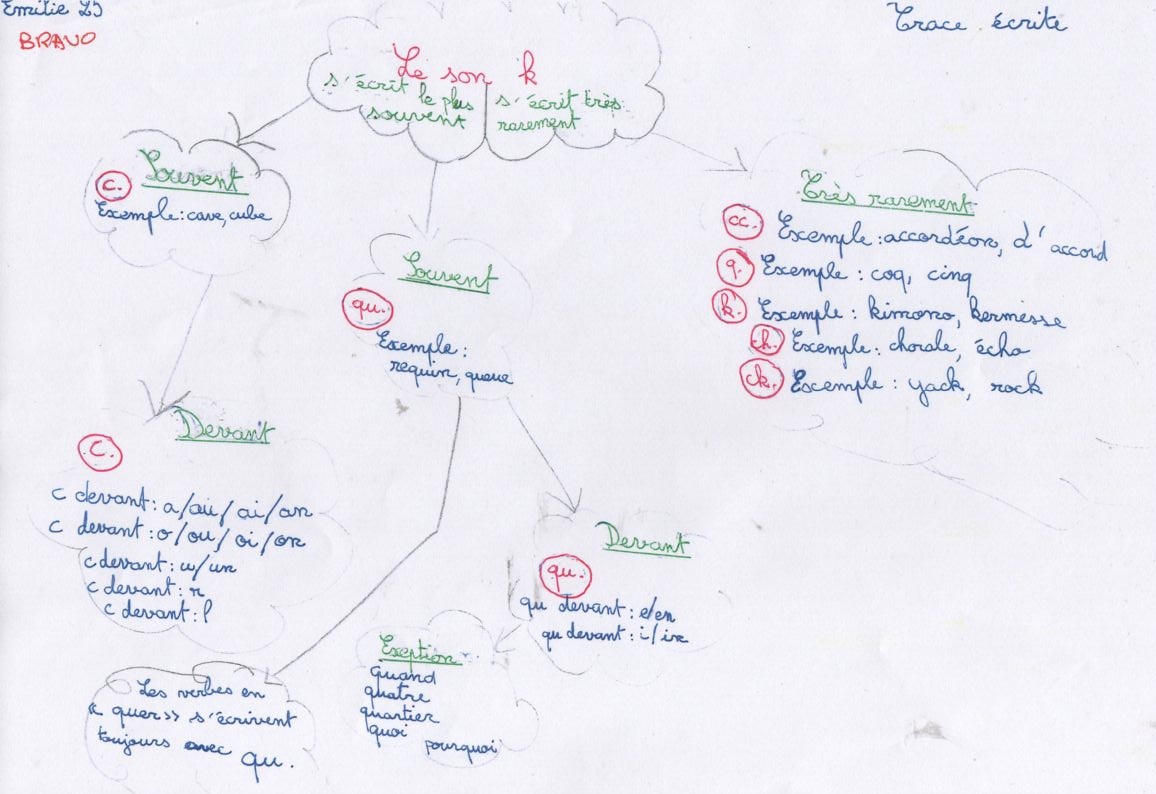 Emilie 25
BRAVO
Trace écrite
Le son k
s'écrit le plus
souvent
s'écrit très
rarement
Souvent
c.
Exemple : cave, cube
Souvent
qu.
Exemple :
requin, queue
Très rarement
cc. Exemple : accordéon, d'accord
q. Exemple : coq, cinq
k. Exemple : kimono, kermesse
ch. Exemple : chorale, écho
ck. Exemple : yack, rock
Devant
C.
c devant : a/au/ai/an
c devant : o/ou/oi/on
c devant : u/un
c devant : r
c devant : l
Devant
qu.
qu devant : e/en
qu devant : i/in
Exeption
quand
quatre
quartier
quoi
pourquoi
Les verbes en
« quer » s'écrivent
toujours avec
qu.